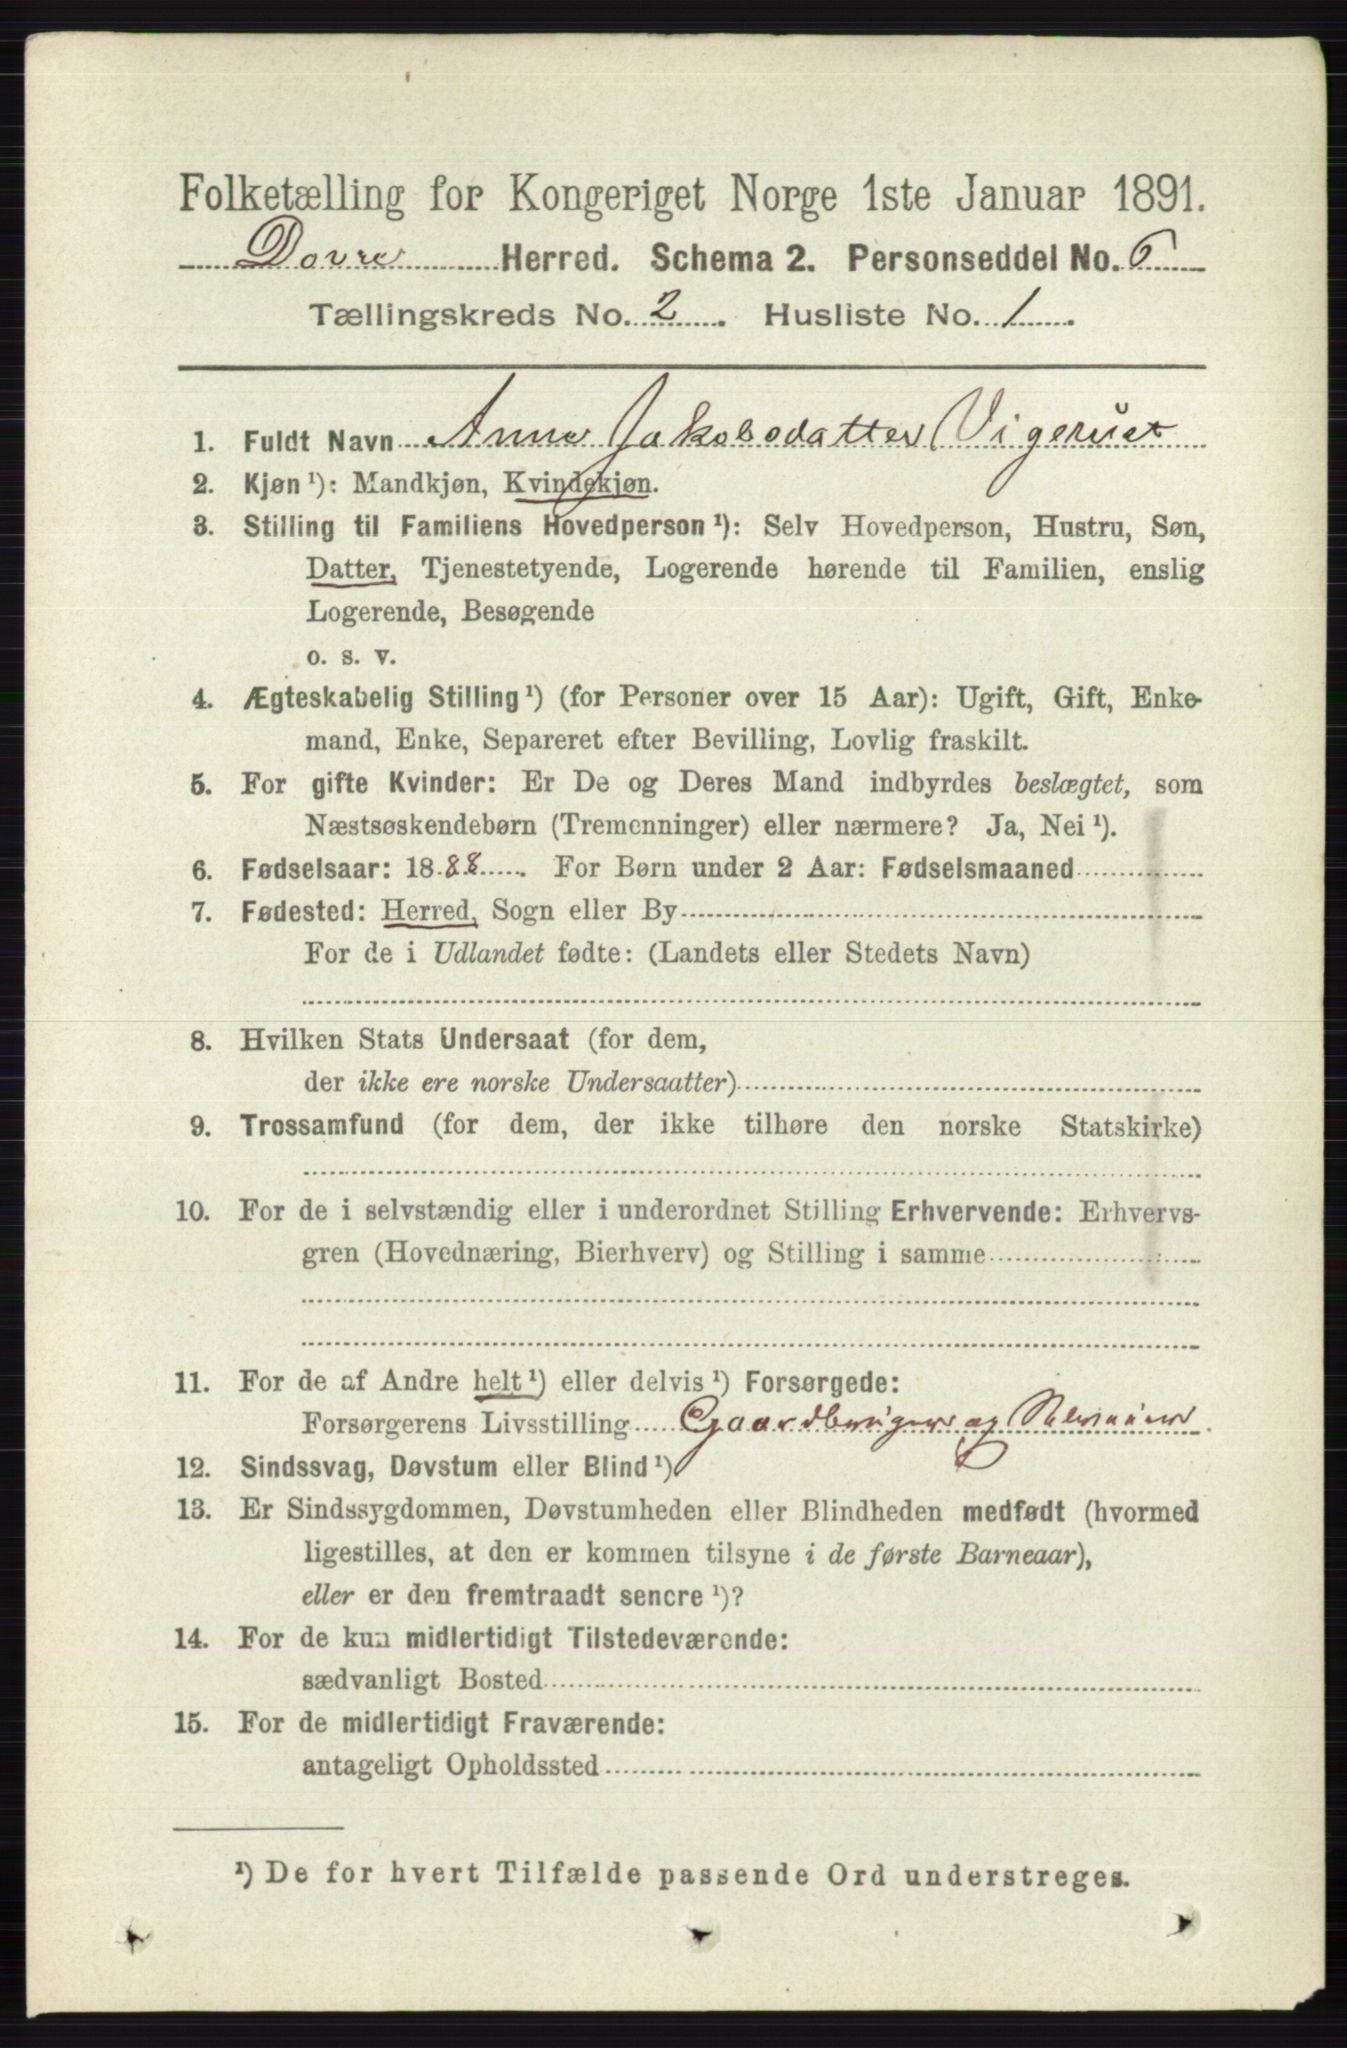 Folketælling for Kongeriget Norge 1ste Januar 1891.
Dovre Herred. Schema 2. Personseddel No. 6
Tællingskreds No. 2. Husliste No. 1.
1. Fuldt Navn Anne Jakobsdatter Vigerust
2. Kjøn ¹): Mandkjøn, Kvindekjøn.
3. Stilling til Familiens Hovedperson ¹): Selv Hovedperson, Hustru, Søn,
Datter, Tjenestetyende, Logerende hørende til Familien, enslig
Logerende, Besøgende
o. s. v.
4. Ægteskabelig Stilling ¹) (for Personer over 15 Aar): Ugift, Gift, Enke-
mand, Enke, Separeret efter Bevilling, Lovlig fraskilt.
5. For gifte Kvinder: Er De og Deres Mand indbyrdes beslægtet, som
Næstsøskendebørn (Tremenninger) eller nærmere? Ja, Nei ¹).
6. Fødselsaar: 1888. For Børn under 2 Aar: Fødselsmaaned
7. Fødested: Herred, Sogn eller By
For de i Udlandet fødte: (Landets eller Stedets Navn)
8. Hvilken Stats Undersaat (for dem,
der ikke ere norske Undersaatter)
9. Trossamfund (for dem, der ikke tilhøre den norske Statskirke)
10. For de i selvstændig eller i underordnet Stilling Erhvervende: Erhvervs-
gren (Hovednæring, Bierhverv) og Stilling i samme
11. For de af Andre helt ¹) eller delvis ¹) Forsørgede:
Forsørgerens Livsstilling Gaardbruger og
12. Sindssvag, Døvstum eller Blind ¹)
13. Er Sindssygdommen, Døvstumheden eller Blindheden medfødt (hvormed
ligestilles, at den er kommen tilsyne i de første Barneaar),
eller er den fremtraadt senere ¹)?
14. For de kun midlertidigt Tilstedeværende:
sædvanligt Bosted
15. For de midlertidigt Fraværende:
antageligt Opholdssted
¹) De for hvert Tilfælde passende Ord understreges.